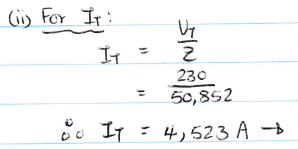 (ii) For I_T :
I_T = V_T / Z
= 230 / 50,852
∴ I_T = 4,523 A →